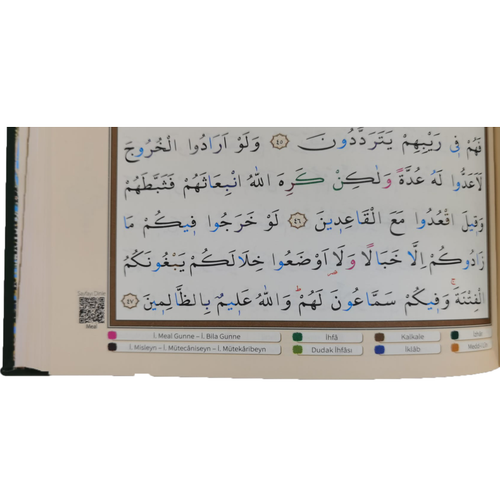 فَهُمْ فٖى رَيْبِهِمْ يَتَرَدَّدُونَ ﴿٤٥﴾ وَلَوْ اَرَادُوا الْخُرُوجَ
لَاَعَدُّوا لَهُ عُدَّةً وَلٰكِنْ كَرِهَ اللّٰهُ انْبِعَاثَهُمْ فَثَبَّطَهُمْ
وَقٖيلَ اقْعُدُوا مَعَ الْقَاعِدٖينَ ﴿٤٦﴾ لَوْ خَرَجُوا فٖيكُمْ مَا
زَادُوكُمْ اِلَّا خَبَالًا وَلَا۬اَوْضَعُوا خِلَالَكُمْ يَبْغُونَكُمُ
الْفِتْنَةَۚ وَفٖيكُمْ سَمَّاعُونَ لَهُمْؕ وَاللّٰهُ عَلٖيمٌ بِالظَّالِمٖينَ ﴿٤٧﴾
Meal
İ. Meal Gunne – İ. Bila Gunne İhfâ Kalkale
İ. Misleyn – İ. Mütecâniseyn – İ. Mütekâribeyn Dudak İhfâsı İklâb